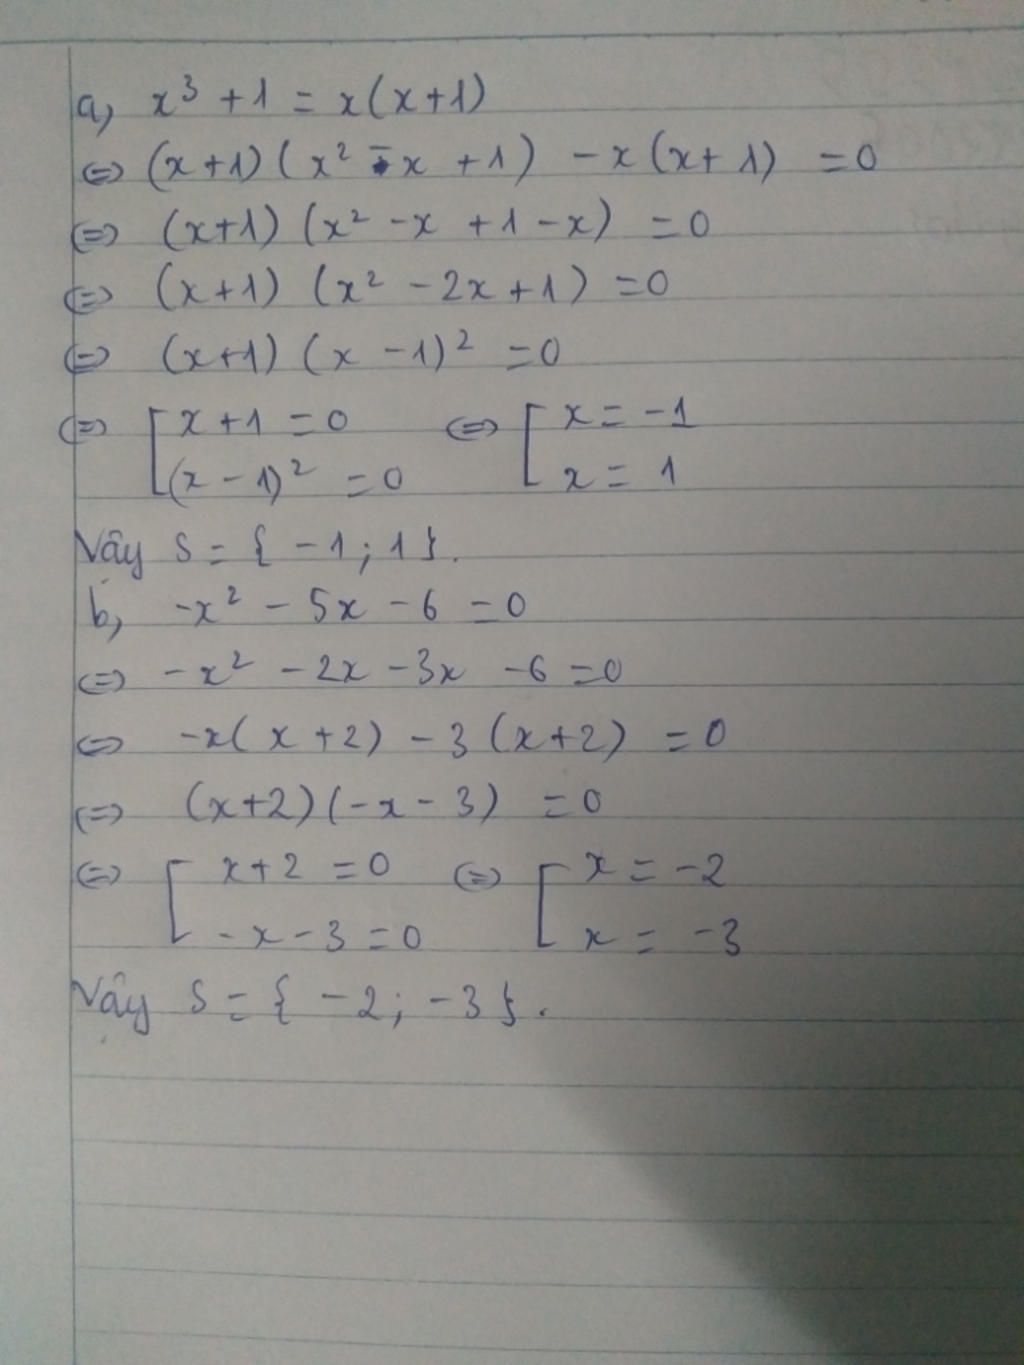 a, x³ + 1 = x(x+1)
⇔ (x+1)(x² - x + 1) - x(x+1) = 0
⇔ (x+1)(x² - x + 1 - x) = 0
⇔ (x+1)(x² - 2x + 1) = 0
⇔ (x+1)(x - 1)² = 0
⇔ [ x + 1 = 0 ⇔ [ x = -1
(x - 1)² = 0 x = 1
Vậy S = { -1 ; 1 }.
b, -x² - 5x - 6 = 0
⇔ -x² - 2x - 3x - 6 = 0
⇔ -x(x + 2) - 3(x+2) = 0
⇔ (x+2)(-x - 3) = 0
⇔ [ x + 2 = 0 ⇔ [ x = -2
-x - 3 = 0 x = -3
Vậy S = { -2 ; -3 }.